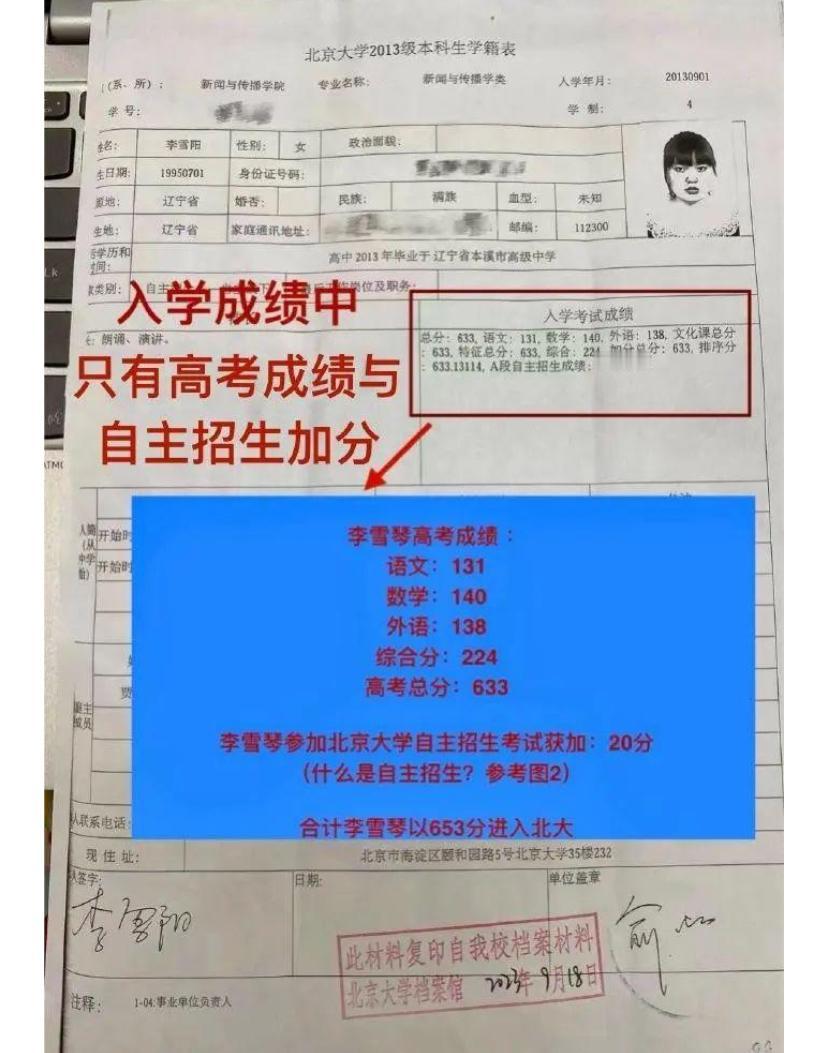 北京大学2013级本科生学籍表
(系、所): 新闻与传播学院 专业名称: 新闻与传播学类 入学年月: 20130901
学号: 学制: 4
姓名: 李雪阳 性别: 女 政治面貌:
生日期: 19950701 身份证号码:
原地: 辽宁省 婚否: 民族: 满族 血型: 未知
生地: 辽宁省 家庭通讯地址: 邮编: 112300
学历和
时间:
高中2013年毕业于辽宁省本溪市高级中学
类别: 自主 岗位及职务:
入学成绩中
只有高考成绩与
自主招生加分
入学考试成绩
长: 朗诵、演讲。
总分: 633, 语文: 131, 数学: 140, 外语: 138, 文化课总分
: 633, 特征总分: 633, 综合: 224 加分总分: 633, 排序分
: 633.13114, A段自主招生成绩:
开始时
开始时
李雪琴高考成绩:
语文: 131
数学: 140
外语: 138
综合分: 224
高考总分: 633
李雪琴参加北京大学自主招生考试获加: 20分
(什么是自主招生? 参考图2)
合计李雪琴以653分进入北大
人联系电话:
现住址: 北京市海淀区颐和园路5号北京大学35楼232
签字: 日期: 单位盖章
李雪阳
此材料复印自我校档案材料
北京大学档案馆 2023年9月18日
注释: 1-04:事业单位负责人